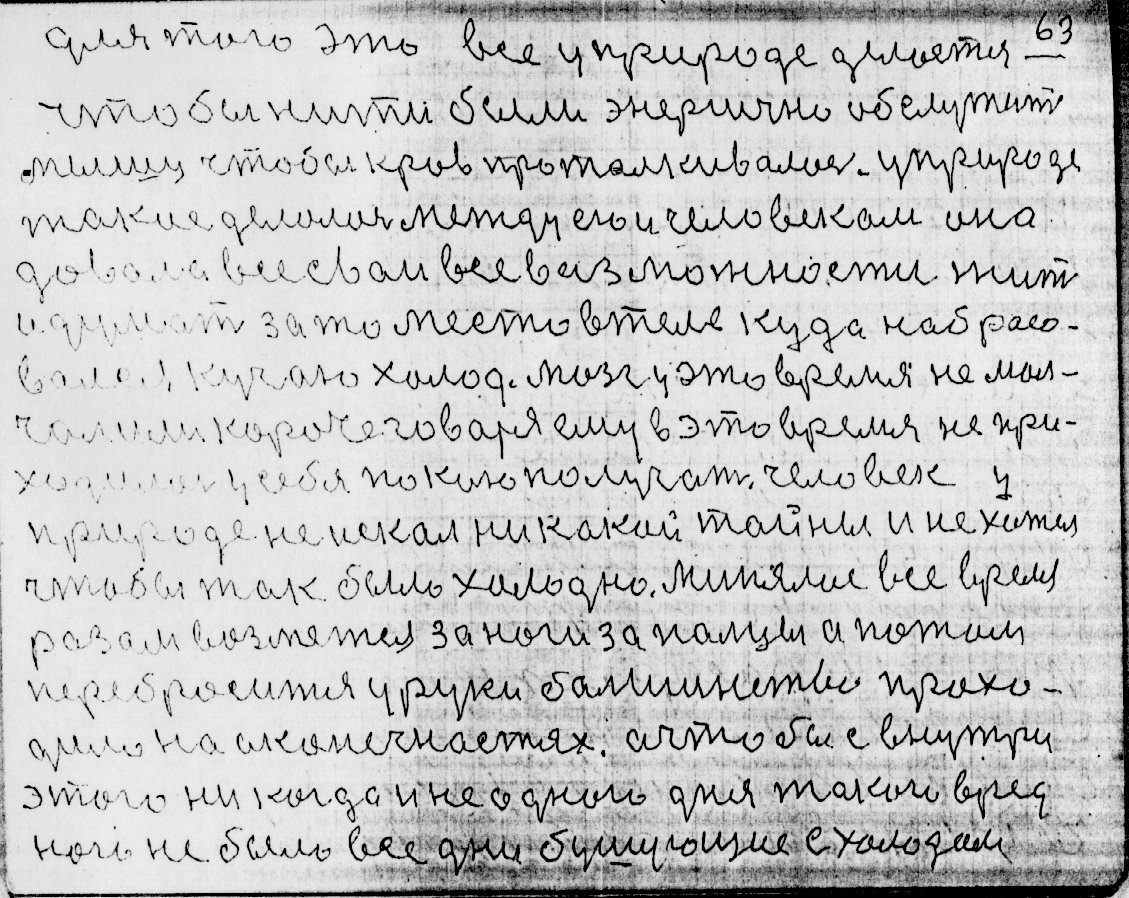 63
для того это все у природе делается
что бы нити были энергично обслужит
мышцу чтобы кров проталкивалос. у природе
такие делолоя между ею и человекам она
довала все сваи все вазможности жит
и думат за то место в теле куда набрасо-
вался кучаю холод. мозг у это время не мол-
чал или кароче говаря ему в это время не при-
ходилос у себя покаю получат. человек у
природе не искал ни какой тайны и не хател
чтобы так было холодно. Миняли все время
разам возметея за ноги за палцы а потам
перебросится у руки балшинство прохо-
дило на аконечнастях. а чтобы с внутри
этого ни когда и не одного дня такого вред
ного не было все дни бушующие с холодам